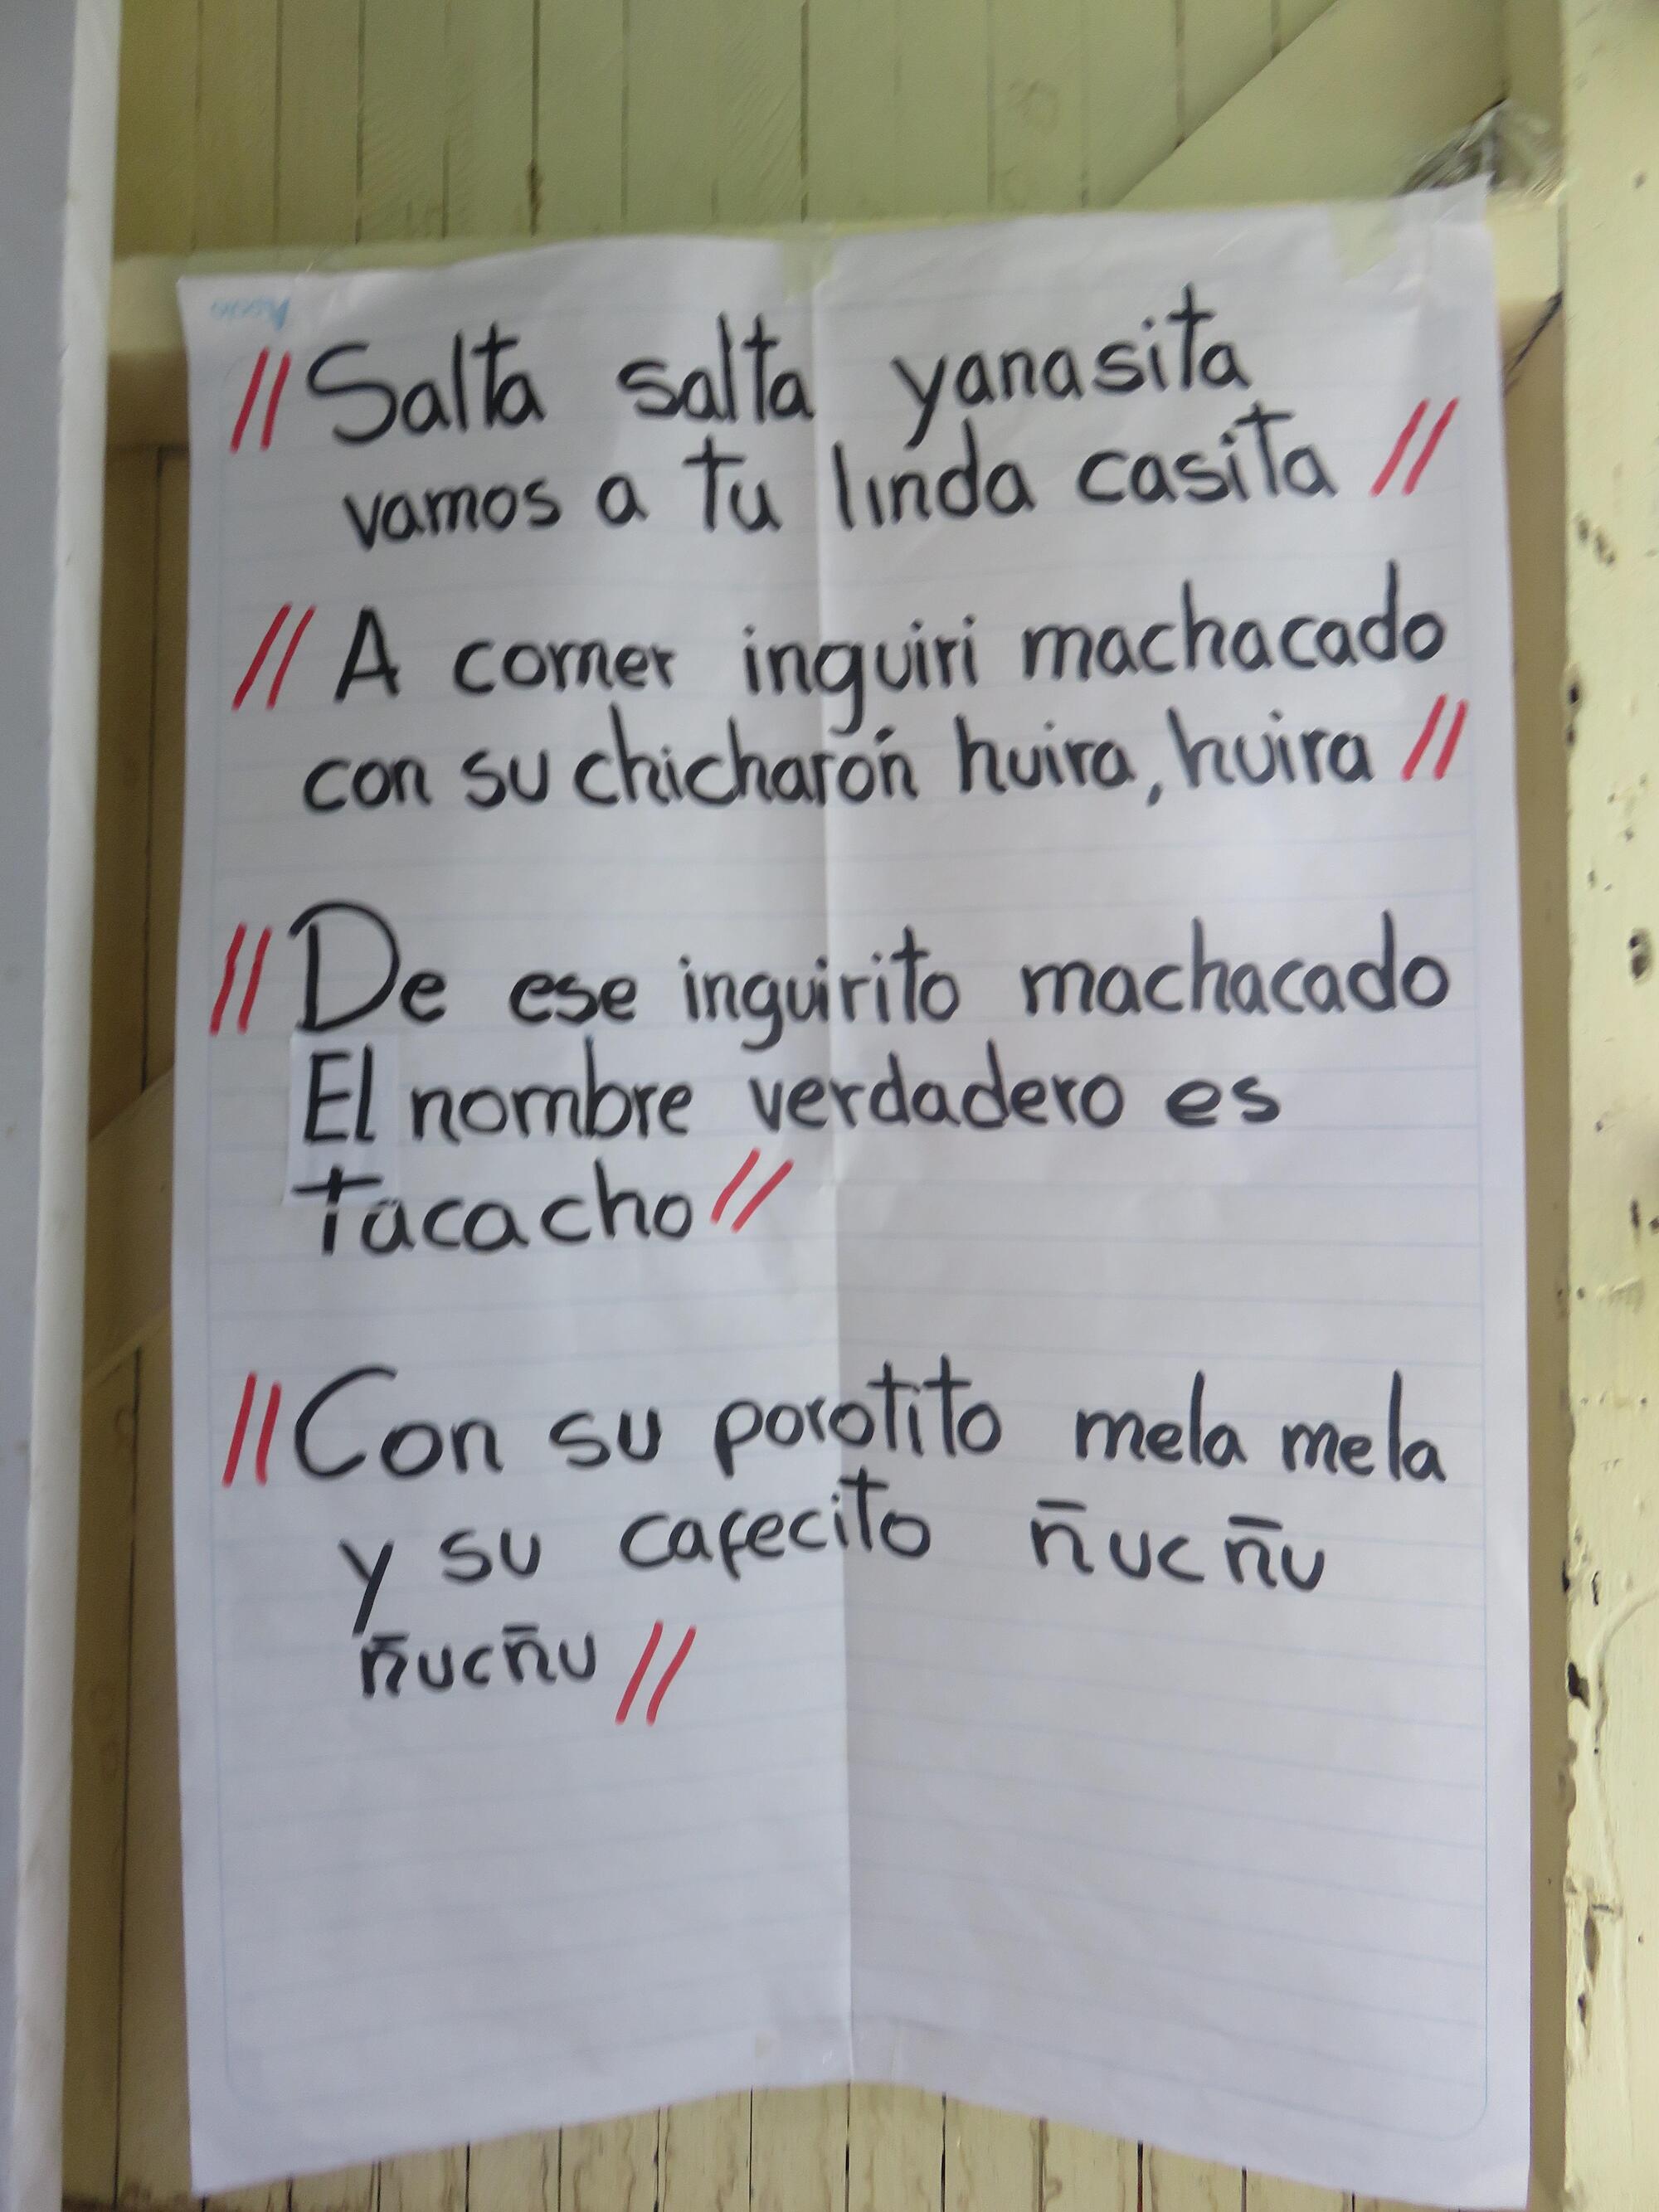 // Salta salta yanasita
vamos a tu linda casita //
// A comer inguiri machacado
con su chicharón huira, huira //
// De ese inguirito machacado
El nombre verdadero es
Tacacho //
// Con su porotito mela mela
y su cafecito ñucñu
ñucñu //